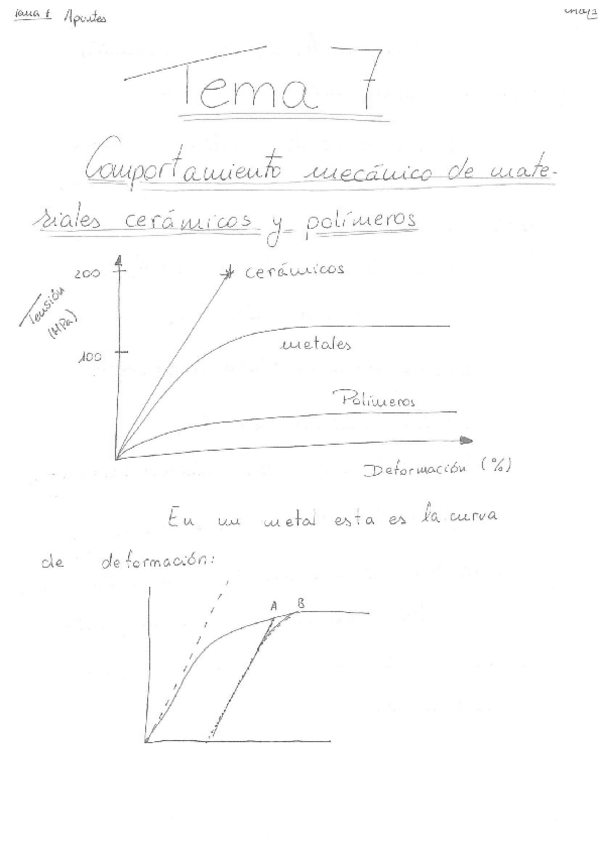 Apuntes
Tema 7
Comportamiento mecánico de mate-
riales cerámicos y polímeros
200
cerámicos
Tensión
(MPa)
metales
100
Polímeros
Deformación (%)
En un metal esta es la curva
de deformación:
A B